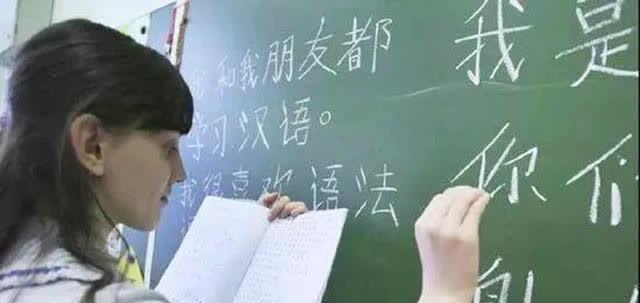 我和我朋友都
学习汉语。
我很喜欢语法
我是
你们